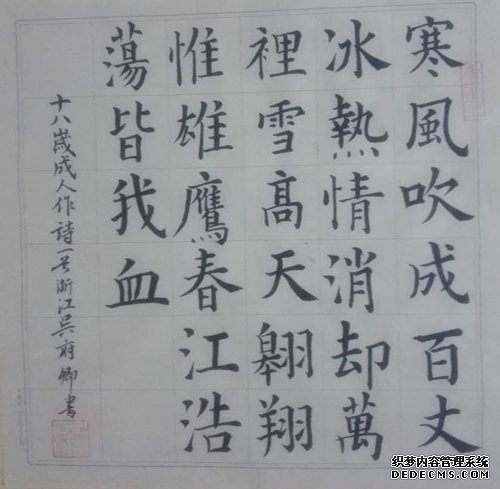 寒風吹成百丈
冰熱情消却萬
裡雪高天翱翔
惟雄鷹春江浩
蕩皆我血
十八歲成人作詩一首浙江吳府卿書
织梦内容管理系统
DEDECMS.COM